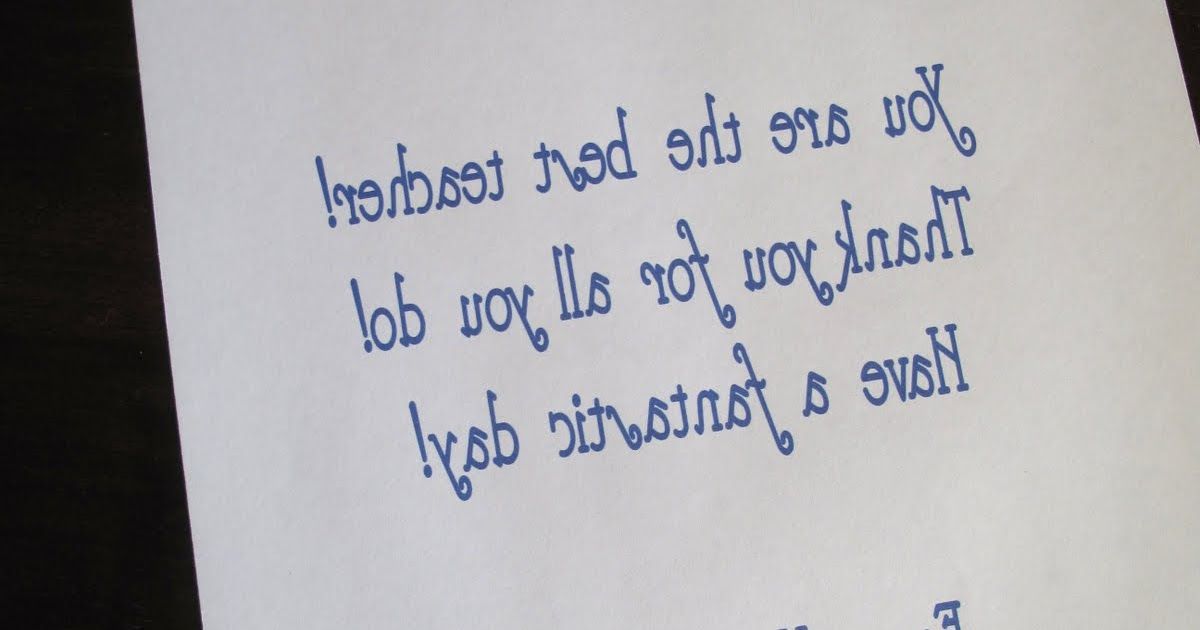 You are the best teacher!
Thank you for all you do!
Have a fantastic day!